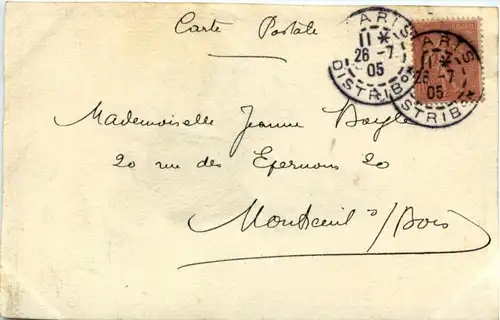 Carte Postale
PARIS
11 *
26 -7
05
DISTRIBON
PARIS
11 *
26 -7
05
DISTRIBON
Mademoiselle Jeanne
20 rue des 20
Montreuil s/Bois